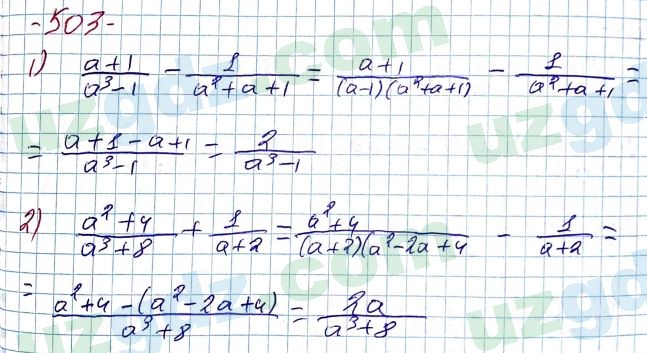 -503-
1) \frac{a+1}{a³-1} - \frac{1}{a²+a+1} = \frac{a+1}{(a-1)(a²+a+1)} - \frac{1}{a²+a+1} =
= \frac{a+1-a+1}{a³-1} = \frac{2}{a³-1}
2) \frac{a²+4}{a³+8} + \frac{1}{a+2} = \frac{a²+4}{(a+2)(a²-2a+4} - \frac{1}{a+2} =
= \frac{a²+4-(a²-2a+4)}{a³+8} = \frac{2a}{a³+8}
uzgdz.com